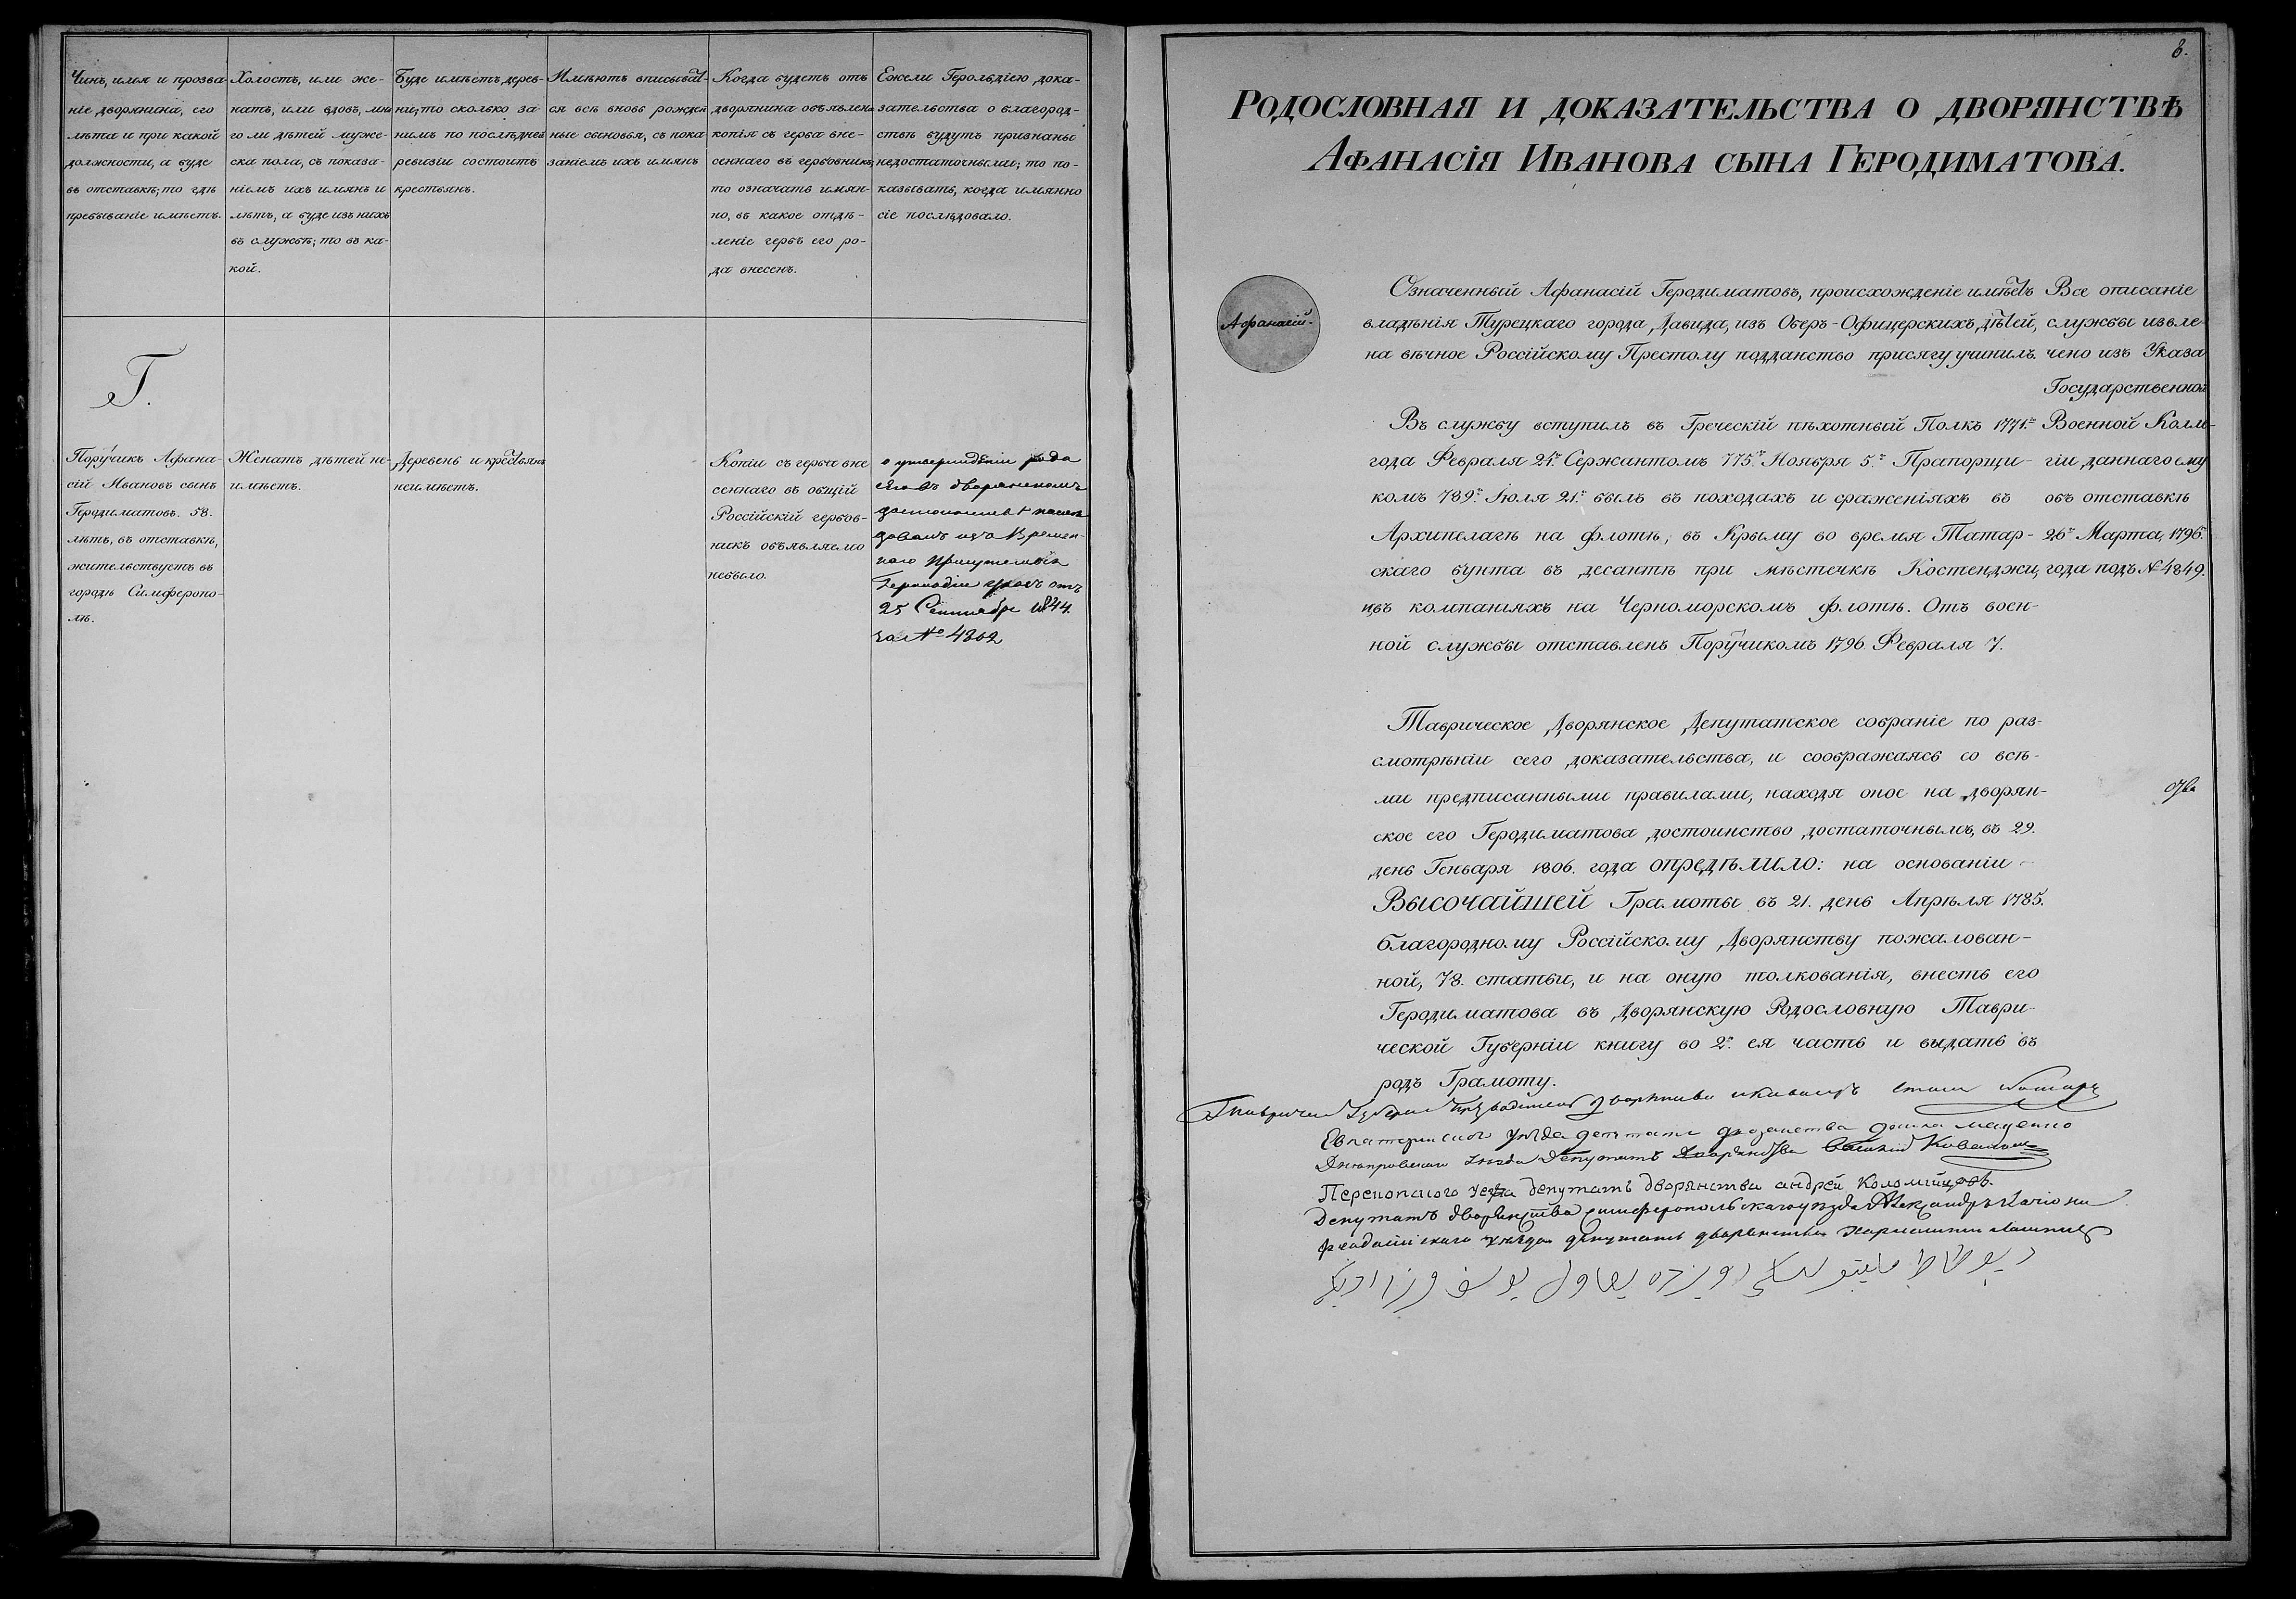 Чинъ, имя и прозва-
ніе дворянина, его
лѣта и при какой
должности, а буде
въ отставкѣ; то гдѣ
пребываніе имѣетъ.
Холостъ, или же-
натъ, или вдовъ, мно
го ли дѣтей муже-
ска пола, съ показа-
ніемъ ихъ имянъ и
лѣтъ, а буде изъ нихъ
въ службѣ; то въ ка-
кой.
Буде имѣетъ дерев-
ни; то сколько за-
нимъ по послѣдней
ревизіи состоитъ
крестьянъ.
Имѣютъ вписыват-
ся всѣ вновь рожден
ные сыновья, съ пока
заніемъ ихъ имянъ
Когда будетъ отъ
дворянина объявлена
копія съ герба вне-
сеннаго въ гербовникъ;
то означать имян-
но, въ какое отдѣ-
леніе гербъ его ро-
да внесенъ.
Ежели Герольдіею дока-
зательства о благород-
ствѣ будутъ признаны
недостаточными; то по-
казывать, когда имянно
сіе послѣдовало.
Г.
Поручикъ Афана-
сій Ивановъ сынъ
Геродиматовъ. 58.
лѣтъ, въ отставкѣ,
жительствуетъ въ
городѣ Симферопо-
лѣ.
Женатъ дѣтей не-
имѣетъ.
Деревень и крестьянъ
неимѣетъ.
Копіи съ герба вне
сеннаго въ общій
Россійскій гербов-
никъ объявляемо
небыло.
о утвержденіи рода
его въ дворянскомъ
достоинствѣ
Времен-
наго Присутствія
Герольдіи указъ отъ
25 Сентября 1844.
за № 4302
8.
Родословная и доказательства о дворянствѣ
Афанасія Иванова сына Геродиматова.
Афанасій.
Означенный Афанасій Геродиматовъ, происхожденіе имѣетъ
владѣнія Турецкаго города Давида, изъ Оберъ-Офицерскихъ дѣтей,
на вѣчное Россійскому Престолу подданство присягу учинилъ.
Въ службу вступилъ въ Греческій пѣхотный Полкъ 1771.го
года Февраля 24.го Сержантомъ 775.го Ноября 5.го Прапорщи-
комъ 789.го Іюля 21.го былъ въ походахъ и сраженіяхъ въ
Архипелагѣ на флотѣ, въ Крыму во время Татар-
скаго бунта въ десантѣ при мѣстечкѣ Костенджи,
ивъ компаніяхъ на Черноморскомъ флотѣ. Отъ воен-
ной службы отставленъ Поручикомъ 1796. Февраля 7.
Все описаніе
службы извле-
чено изъ Указа
Государственной
Военной Колле-
гіи даннаго ему
объ отставкѣ
26го Марта, 1796го
года подъ № 4849.
Таврическое Дворянское Депутатское собраніе по раз-
смотрѣніи сего доказательства, и соображаясь со всѣ-
ми предписанными правилами, находя оное на дворян-
ское его Геродиматова достоинство достаточнымъ, въ 29.
день Генваря 1806. года опредѣлило: на основаніи
Высочайшей Грамоты въ 21. день Апрѣля 1785.
благородному Россійскому Дворянству пожалован-
ной, 78. статьи, и на оную толкованія, внесть его
Геродиматова въ Дворянскую Родословную Таври-
ческой Губерніи книгу во 2.ю ея часть и выдать въ
родъ Грамоту.
Евпаторискаго уѣзда депутатъ
Днепровскаго уѣзда Депутатъ Дворянства
Перекопского уезда депутатъ дворянства андрей Коломійцовъ.
Депутатъ дворянства симферопольскаго уѣзда Александръ
Феодосійскаго уѣзда депутатъ дворянства